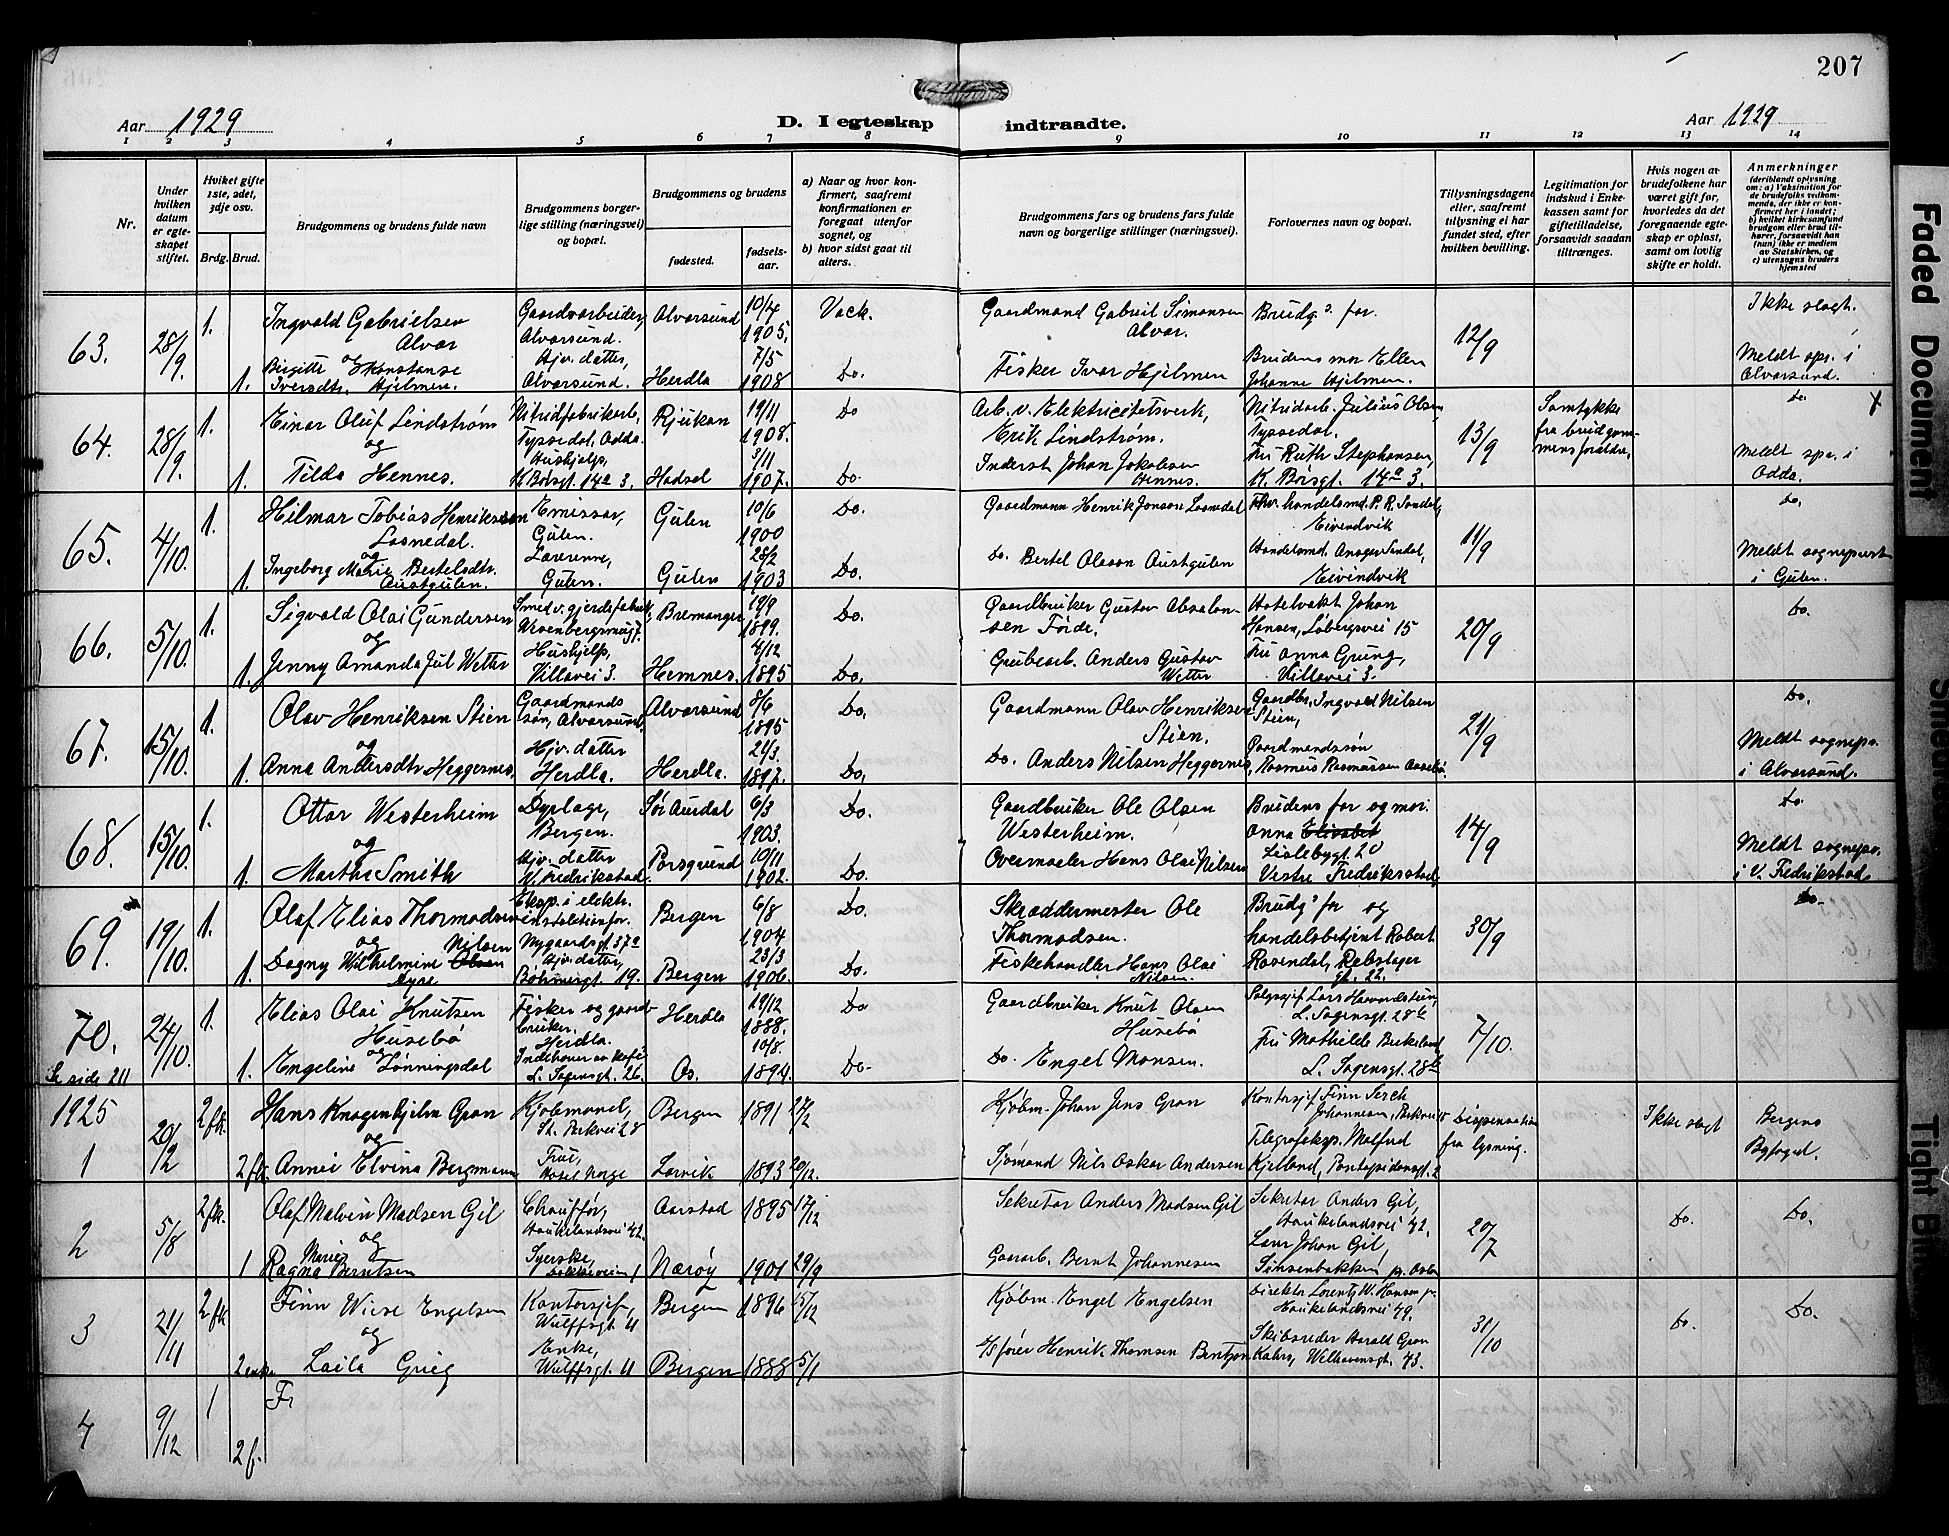 207
Aar 1929
D. I egteskap indtraadte.
Aar 1929
1 2 3 4 5 6 7 8 9 10 11 12 13 14
Nr.
Under hvilken datum er egteskapet stiftet.
Hviket gifte 1ste, 2det, 3dje osv.
Brdg. Brud.
Brudgommens og brudens fulde navn
Brudgommens borgerlige stilling (næringsvei) og bopæl.
Brudgommens og brudens
fødested.
fødselsaar.
a) Naar og hvor konfirmert, saafremt konfirmationen er foregaat utenfor sognet, og
b) hvor sidst gaat til alters.
Brudgommens fars og brudens fars fulde navn og borgerlige stillinger (næringsvei).
Forlovernes navn og bopæl.
Tillysningsdagene eller, saafremt tillysning ei har fundet sted, efter hvilken bevilling.
Legitimation for indskud i Enkekassen samt for giftetilladelse, forsaavidt saadan tiltrænges.
Hvis nogen av brudefolkene har været gift før, hvorledes da det foregaaende egteskap er opløst, samt om lovlig skifte er holdt.
Anmerkninger (deriblandt oplysning om: a) Vaksination for de brudefolks vedkommende, der ikke er konfirmert her i landet; b) hvilket kirkesamfund brudgom eller brud tilhører, forsaavidt han (hun) ikke er medlem av Statskirken, og c) utensogns bruders hjemsted
63. 28/9. 1. Ingvald Gabrielsen Alvær
Gaardsarbeider, Alversund. Alversund 10/4 1905. Vack.
Gaardmand Gabriel Simonsen Alvær.
Brudg.s far.
12/9
Ikke slegt.
og
1. Birgitte Konstanse Iversdtr. Hjelmen.
Hjv. datter, Alversund. Herdla 7/5 1908 Do.
Fisker Ivar Hjelmen
Brudens mor Ellen Johanne Hjelmen.
Meldt spr. i Alversund.
64. 28/9. 1. Einar Oluf Lindstrøm
Nitridfabrikarb., Tyssedal, Odda. Rjukan 19/11 1908. Do
Arb. v. Elektricitetsverk, Erik Lindstrøm.
Nitridarb. Julius Olsen, Tyssedal.
13/9
Samtykke fra brudgommens forældre.
Do.
og
1. Tilda Hennes.
Hushjelp, K. Børsgt. 14a 3. Hadsel 3/11 1907. Do.
Inderst Johan Jakobsen Hennes.
Fru Ruth Stephansen, K. Børsgt. 14a 3.
Meldt spr. i Odda.
65. 4/10. 1. Hilmar Tobias Henriksen Losnedal.
Emissær, Gulen. Gulen 10/6 1900 Do.
Gaardmann Henrik Jonsson Losnedal
Fhv. handelsmd. P. R. Sandal, Eivendvik
11/9
Do.
og
1. Ingeborg Marie Bertelsdtr. Austgulen.
Lærerinne, Gulen. Gulen 28/2 1903 Do.
Do. Bertel Olsson Austgulen
Handelsmd. Ansgar Sendal, Eivindvik
Meldt sogneprest i Gulen.
66. 5/10. 1. Sigvald Olai Gundersen
Smed v. gjerdefabrik, Bremanger 19/9 1899. Do.
Gaardbruker Gustav Absalonsen Førde.
Hotelvakt Johan Hansen, Løbergsvei 15
20/9
Do.
og
1. Jenny Amanda Jul Wetter
Hushjelp, Villavei 3. Hemnes. 4/12 1895 Do.
Grubearb. Anders Gustav Witter
Fru Anna Grung, Villavei 3.
67. 15/10. 1. Olav Henriksen Stien
Gaardmands søn, Alversund. Alversund 8/6 1895 Do.
Gaardmann Olav Henriksen Stien.
Gaardbr. Ingvald Nilsen Stien,
21/9
Do.
og
1. Anna Andersdtr Heggernes.
Hjv. datter Herdla. Herdla. 21/3. 1897. Do.
Do. Anders Nilsen Heggernes,
Gaardmandssøn Rasmus Rasmussen
Meldt sognepr. i Alversund.
68. 15/10. 1. Ottar Westerheim
Dyrlæge, Bergen. Sør Aurdal 6/3 1903. Do.
Gaardbruker Ole Olsen Westerheim.
Brudens far og mor: Anna Elisabet
14/9
Do.
og
1. Marthe Smith
Hjv. datter V. Fredrikstad. Porsgrund 10/11 1902. Do.
Overmaaler Hans Olai Nilsen
Lislebygt. 20 Vestre Fredrikstad,
Meldt sognepr. i V. Fredrikstad.
69. 19/10. 1. Olaf Elias Thormodsen
Eksp. i elektr. instalationsfor. Nygaardsgt. 37a Bergen 6/8 1904 Do.
Skræddermester Ole Thormodsen.
Brudg.s far og
30/9
Do.
og
1. Dagny Wilhelmine Nilsen Olsen Dyre
Hjv. datter, Bøhmergt. 19. Bergen 23/3 1906. Do.
Fiskehandler Hans Olai Nilsen.
handelsbetjent Robert Rosendal, Rebslager gt. 22.
70. 24/10. 1. Elias Olai Knutsen Husebø
Fisker og gaardbruker. Herdla. Herdla 19/12 1888. Do
Gaardbruker Knut Olsen Husebø
Salgssjef Lars L. Sagensgt. 28
7/10.
og
1. Engeline Lønningsdal
Indehaver av kafé L. Sagensgt. 26. Os. 10/8. 1894. Do.
Do. Engel Monsen.
Fru Mathilde Birkeland L. Sagensgt. 28
Se side 211
1925
1 20/2 2 fsk. Hans Knagenhjelm Gran
Kjøbmand, St. Parkvei 28 Bergen 1891 27/2
Kjøbm. Johan Jens Gran
Kontorsjef Finn Serck Johannsen, Parkvei 15
Dispensation fra lysning.
Ikke slegt
Bergens Byfoged.
og
2 fsk. Annie Elvina Bergmann
Frue, Hotel Norge Larvik 1893 29/12.
Sjømand Nils Oskar Andersen
Telegrafeksp. Kjelland, Pontopidansgt. 2
2 5/8 2 fsk. Olaf Malvin Madsen Gil
Chauffør, Haukelandsvei 42. Aarstad 1895 17/12
Sekretær Anders Madsen Gil
Sekretær Anders Gil, Haukelandsvei 42.
20/7
Do.
Do.
og
1 Ragna Marie Berntsen
Syerske, Nærøy 1901 29/9
Gaarb. Bernt Johannesen
Lars Johan Gil, Sinsenbakken pr. Oslo
3 21/11 2 fsk Finn Wiese Engelsen
Kontorsjef, Wulffsgt. 11 Bergen 1896 15/12
Kjøbm. Engel Engelsen
Direktør Lorentz W. Hansen jr. Haukelandsvei 49.
31/10
Do.
Do.
og
2 enke Laila Grieg
Enke, Wulffsgt. 11 Bergen 1888 5/1
S/S fører Henrik Thomsen Bentzon
Skibsreder Harald Gran Kahrs, Welhavensgt. 73.
4 9/12 1 Fr
2 f.
Faded Document
Tight Bi